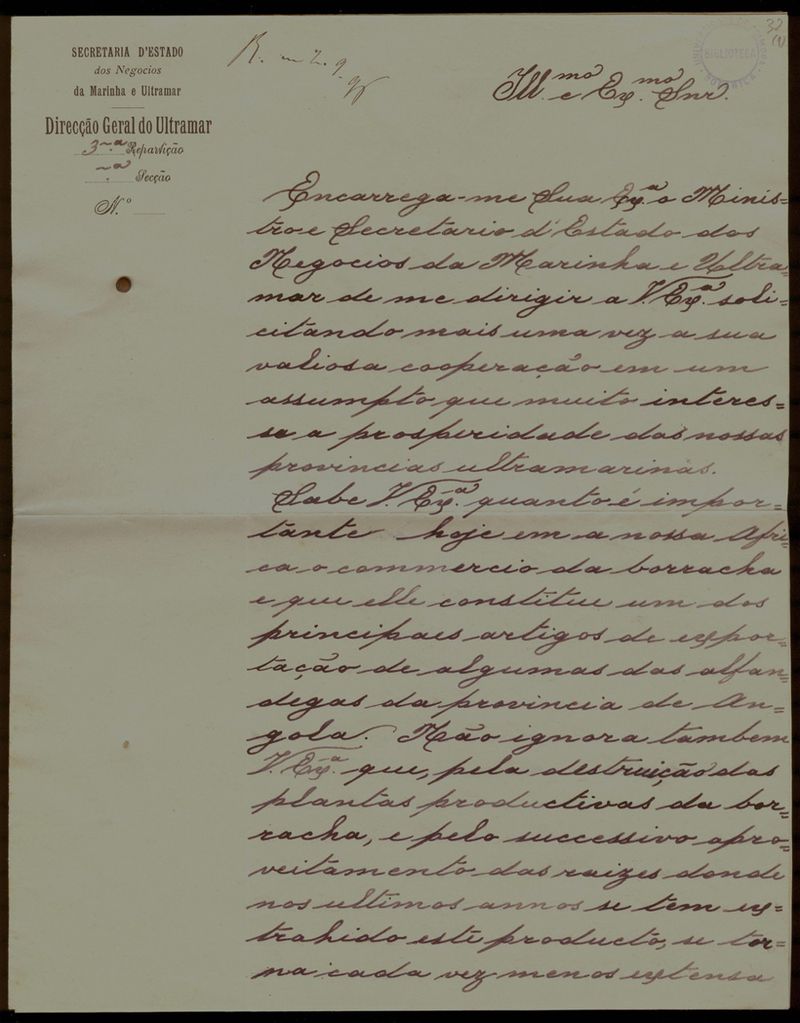 SECRETARIA D'ESTADO
dos Negocios
da Marinha e Ultramar
Direcção Geral do Ultramar
3.ª Repartição
Secção
N.º
32
(1)
BIBLIOTECA
R. em 2. 9. 96
Ill.mo e Ex.mo Snr.
Encarrega-me Sua Ex.ª o Minis=
tro e Secretario d'Estado dos
Negocios da Marinha e Ultra=
mar de me dirigir a V. Ex.ª soli=
citando mais uma vez a sua
valiosa cooperação em um
assumpto que muito interes=
sa a prosperidade das nossas
provincias ultramarinas.
Sabe V. Ex.ª quanto é impor=
tante hoje em a nossa Afri=
ca o commercio da borracha
e que elle constitue um dos
principaes artigos de expor=
tação de algumas das alfan=
degas da provincia de An=
gola. Não ignora tambem
V. Ex.ª que, pela destruição das
plantas productivas da bor=
racha, e pelo successivo apro=
veitamento das raizes donde
nos ultimos annos se tem ex=
trahido este producto, se tor=
na cada vez menos extensa